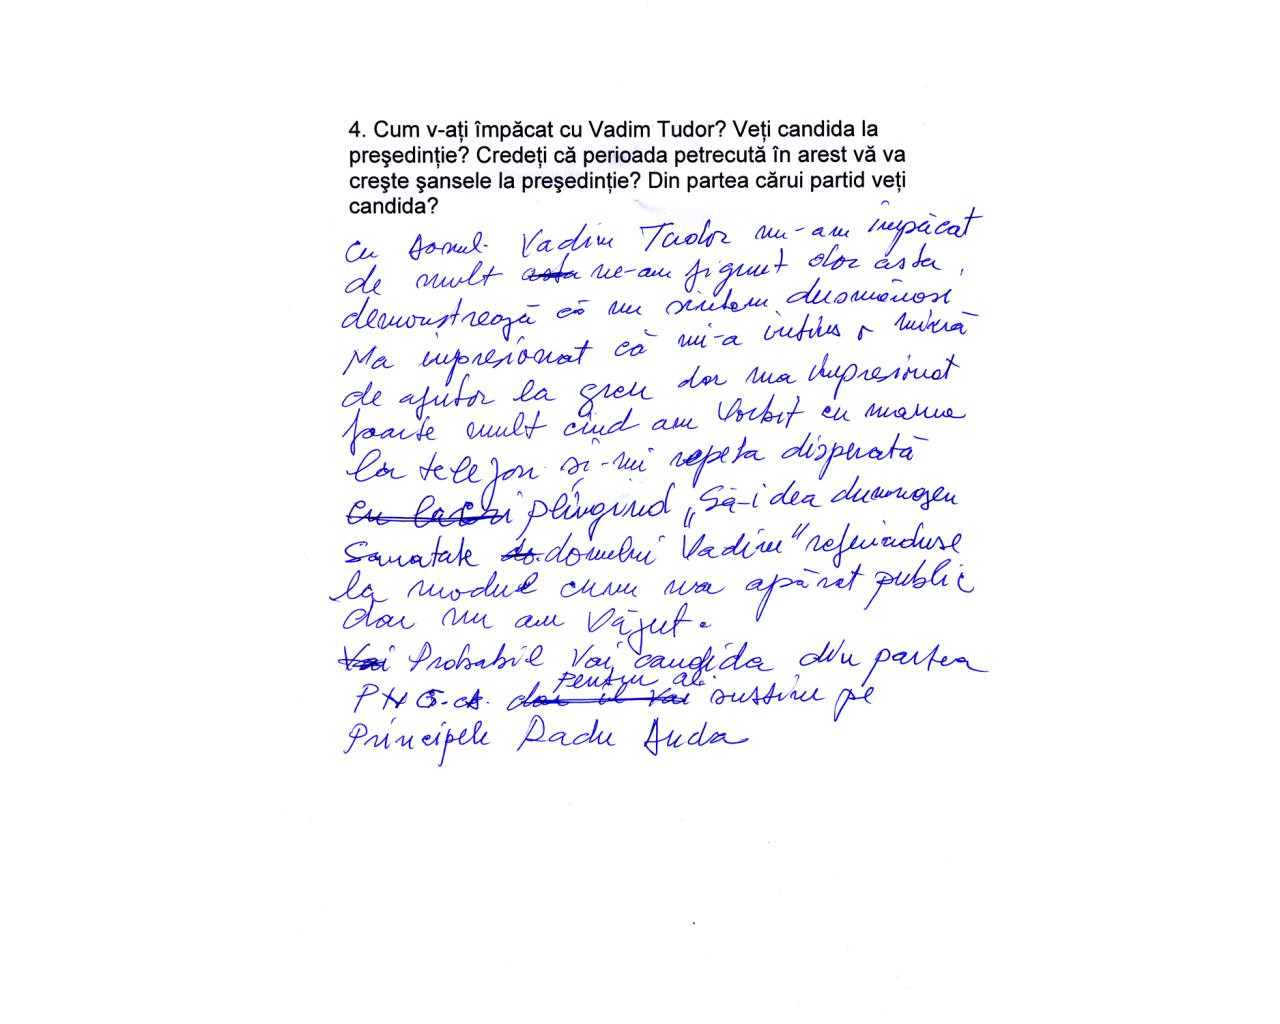 4. Cum v-ați împăcat cu Vadim Tudor? Veți candida la
președinție? Credeți că perioada petrecută în arest vă va
crește șansele la președinție? Din partea cărui partid veți
candida?
Cu domul Vadim Tudor nu-am împăcat
de mult asta ne-am jignit dor asta,
demonstrează că nu sintem dusmănosi
Ma inpresionat că mi-a intins o mînă
de ajutor la greu dar ma impresionat
foarte mult cind am Vorbit cu mama
la telefon și-mi repeta disperată
cu lacri plîngind „Să-i dea dumnezeu
Sanatate do. domului Vadim" referinduse
la modul cum ma apărat public
dar nu am Văzut.
Voi Probabil Voi candida din partea
pentru al
PNG-cd. dar il Voi sustine pe
Principele Radu Duda